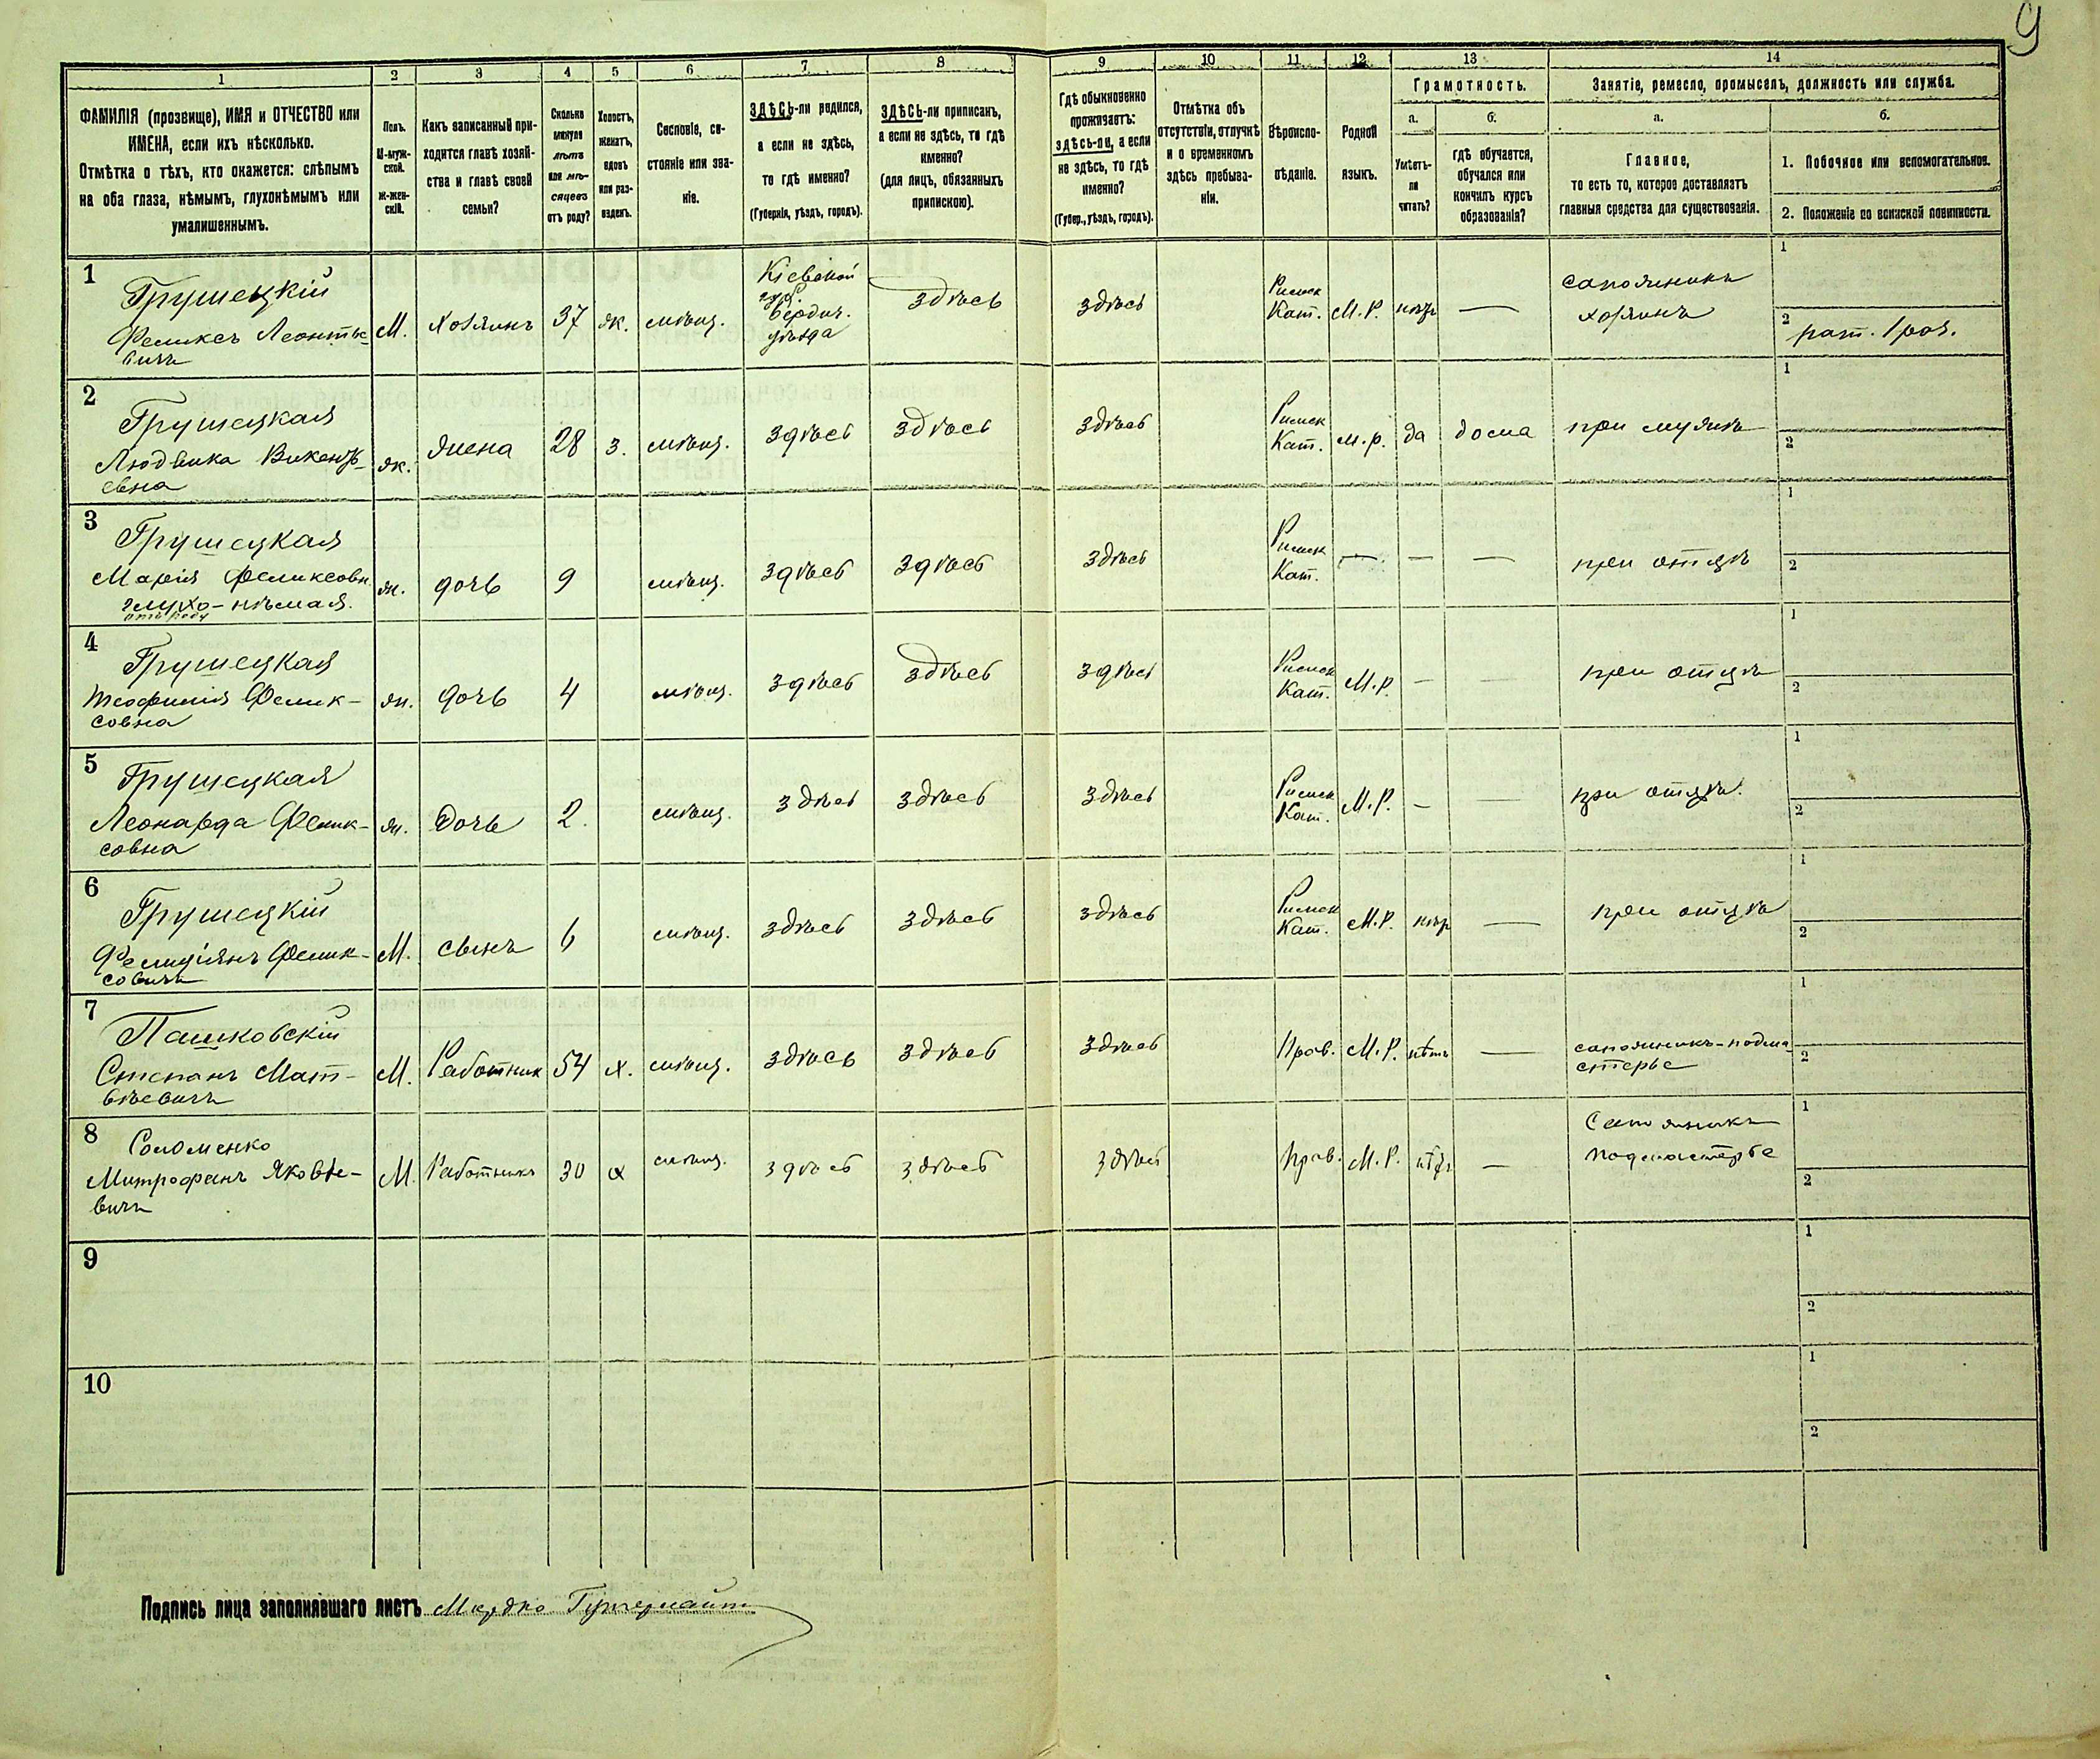 9
1 2 3 4 5 6 7 8 9 10 11 12 13 14
ФАМИЛІЯ (прозвище), ИМЯ и ОТЧЕСТВО или
ИМЕНА, если ихъ нѣсколько.
Отмѣтка о тѣхъ, кто окажется: слѣпымъ
на оба глаза, нѣмымъ, глухонѣмымъ или
умалишеннымъ.
Полъ.
М-муж-
ской.
ж-жен-
скій.
Какъ записанный при-
ходится главѣ хозяй-
ства и главѣ своей
семьи?
Сколько
минуло
лѣтъ
или мѣ-
сяцевъ
отъ роду?
Холостъ,
женатъ,
вдовъ
или раз-
веденъ.
Сословіе, со-
стояніе или зва-
ніе.
ЗДѢСЬ-ли родился,
а если не здѣсь,
то гдѣ именно?
(Губернія, уѣздъ, городъ).
ЗДѢСЬ-ли приписанъ,
а если не здѣсь, то гдѣ
именно?
(для лицъ, обязанныхъ
припискою).
Гдѣ обыкновенно
проживаетъ:
здѣсь-ли, а если
не здѣсь, то гдѣ
именно?
(Губер., уѣздъ, городъ).
Отмѣтка объ
отсутствіи, отлучкѣ
и о временномъ
здѣсь пребыва-
ніи.
Вѣроиспо-
вѣданіе.
Родной
языкъ.
Грамотность.
а.
Умѣетъ-
ли
читать?
б.
гдѣ обучается,
обучался или
кончилъ курсъ
образованія?
Занятіе, ремесло, промыселъ, должность или служба.
а.
Главное,
то есть то, которое доставляетъ
главныя средства для существованія.
б.
1. Побочное или вспомогательное.
2. Положеніе по воинской повинности.
1
Грушецкій
Феликсъ Леонтье-
вичъ
М.
Хозяинъ
37
ж.
мѣщ.
Кіевской
губ.
Бердич.
уѣзда
здѣсь
здѣсь
Римск
Кат.
М.Р.
нѣтъ
—
сапожникъ
хозяинъ
1
2
рат. 1 раз.
2
Грушецкая
Людвика Викентье-
евна
ж.
жена
28
з.
мѣщ.
здѣсь
здѣсь
здѣсь
Римск
Кат.
м.р.
да
дома
при мужѣ
1
2
3
Грушецкая
Марія Феликсовн.
глухо-нѣмая.
отъ роду
ж.
дочь
9
мѣщ.
здѣсь
здѣсь
здѣсь
Римск
Кат.
— — —
при отцѣ
1
2
4
Грушецкая
Теофилія Феликс-
совна
ж.
дочь
4
мѣщ.
здѣсь
здѣсь
здѣсь
Римск
Кат.
М.Р.
— —
при отцѣ
1
2
5
Грушецкая
Леонарда Феликс-
совна
ж.
дочь
2.
мѣщ.
здѣсь
здѣсь
здѣсь
Римск
Кат.
М.Р.
— —
при отцѣ.
1
2
6
Грушецкій
Фелиціянъ Фелик-
совичъ
М.
сынъ
6
мѣщ.
здѣсь
здѣсь
здѣсь
Римск
Кат.
М.Р.
нѣтъ
—
при отцѣ
1
2
7
Пашковскій
Степанъ Мат-
вѣевичъ
М.
Работник
54
х.
мѣщ.
здѣсь
здѣсь
здѣсь
Прав.
М.Р.
нѣтъ
—
сапожникъ-подма-
стерье
1
2
8
Соломенко
Митрофанъ Яковле-
вичъ
М.
Работникъ
30
х
мѣщ.
здѣсь
здѣсь
здѣсь
Прав.
М.Р.
нѣтъ
—
Сапожникъ
подмастерье
1
2
9
1
2
10
1
2
Подпись лица заполнявшаго листъ